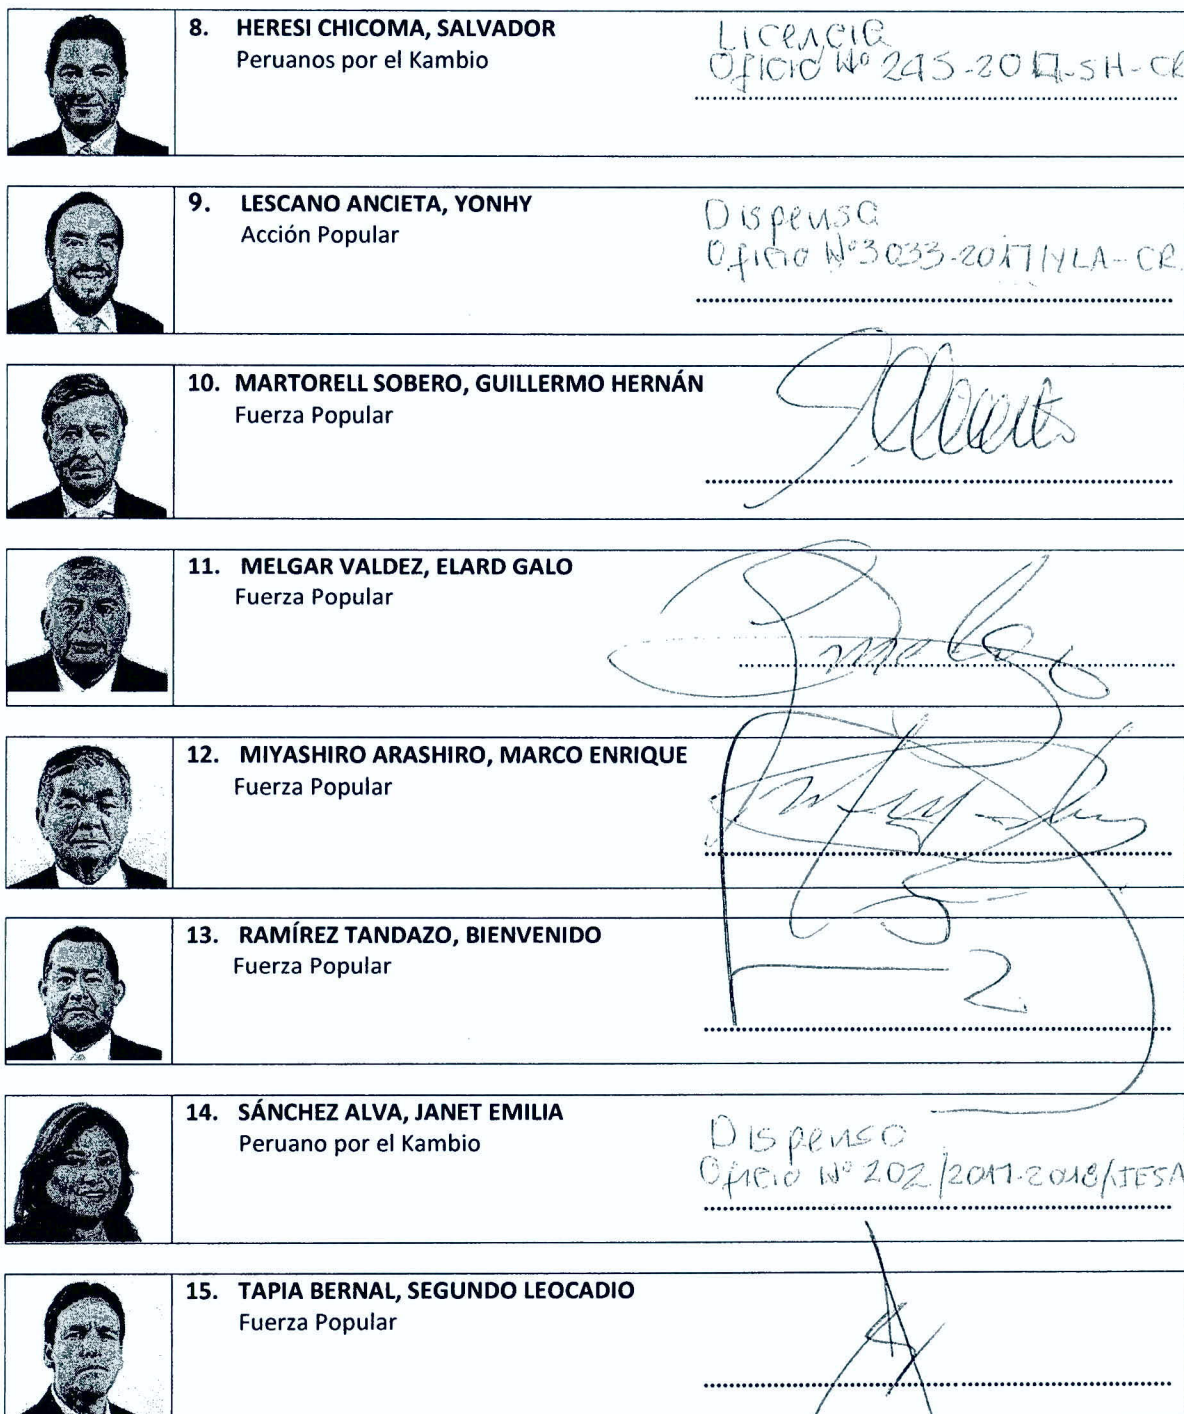 8. HERESI CHICOMA, SALVADOR
Peruanos por el Kambio
Licencia
Oficio Nº 245-2017-SH-CR
9. LESCANO ANCIETA, YONHY
Acción Popular
Dispensa
Oficio Nº3033-2017/YLA-CR.
10. MARTORELL SOBERO, GUILLERMO HERNÁN
Fuerza Popular
11. MELGAR VALDEZ, ELARD GALO
Fuerza Popular
12. MIYASHIRO ARASHIRO, MARCO ENRIQUE
Fuerza Popular
13. RAMÍREZ TANDAZO, BIENVENIDO
Fuerza Popular
14. SÁNCHEZ ALVA, JANET EMILIA
Peruano por el Kambio
Dispenso
Oficio Nº 202/2017-2018/JESA
15. TAPIA BERNAL, SEGUNDO LEOCADIO
Fuerza Popular